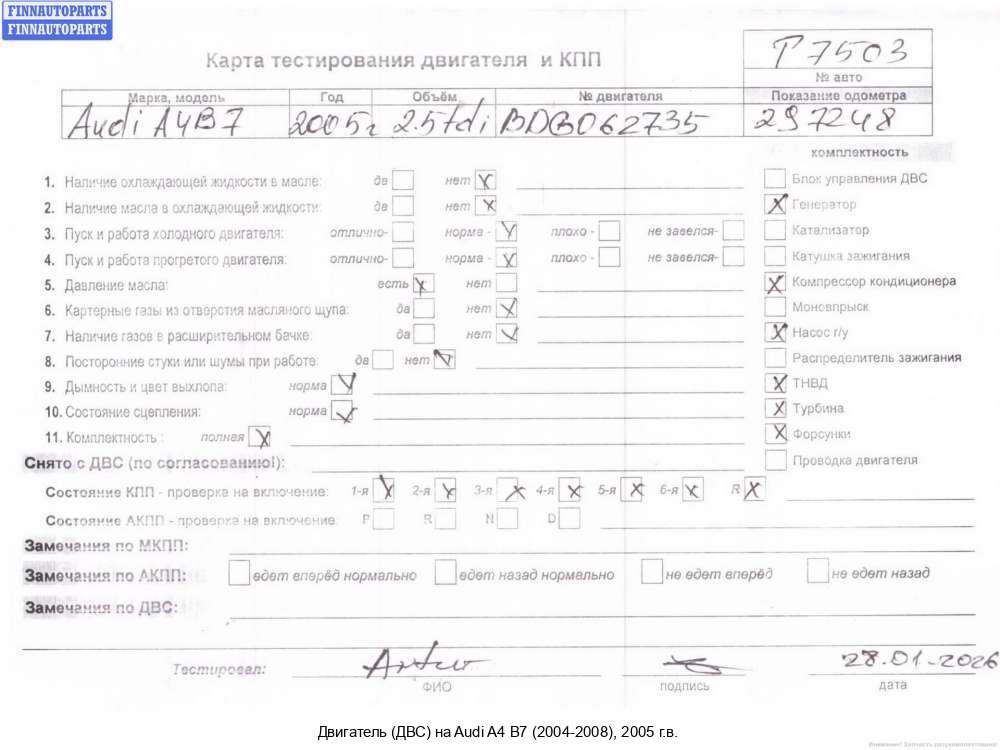 FINNAUTOPARTS
FINNAUTOPARTS
Карта тестирования двигателя и КПП
T7503
№ авто
Марка, модель Год Объём № двигателя Показание одометра
Audi A4B7 2005г 2.5tdi BDB062735 297248
комплектность
1. Наличие охлаждающей жидкости в масле: да нет
2. Наличие масла в охлаждающей жидкости: да нет
3. Пуск и работа холодного двигателя: отлично- норма - плохо - не завелся-
4. Пуск и работа прогретого двигателя: отлично- норма - плохо - не завелся-
5. Давление масла: есть нет
6. Картерные газы из отверстия масляного щупа: да нет
7. Наличие газов в расширительном бачке: да нет
8. Посторонние стуки или шумы при работе: да нет
9. Дымность и цвет выхлопа: норма
10. Состояние сцепления: норма
11. Комплектность : полная
Блок управления ДВС
Генератор
Катализатор
Катушка зажигания
Компрессор кондиционера
Моновпрыск
Насос г/у
Распределитель зажигания
ТНВД
Турбина
Форсунки
Проводка двигателя
Снято с ДВС (по согласованию!):
Состояние КПП - проверка на включение: 1-я 2-я 3-я 4-я 5-я 6-я R
Состояние АКПП - проверка на включение: P R N D
Замечания по МКПП:
Замечания по АКПП: едет вперёд нормально едет назад нормально не едет вперёд не едет назад
Замечания по ДВС:
Тестировал: 28.01-2026
ФИО подпись дата
Двигатель (ДВС) на Audi A4 B7 (2004-2008), 2005 г.в.